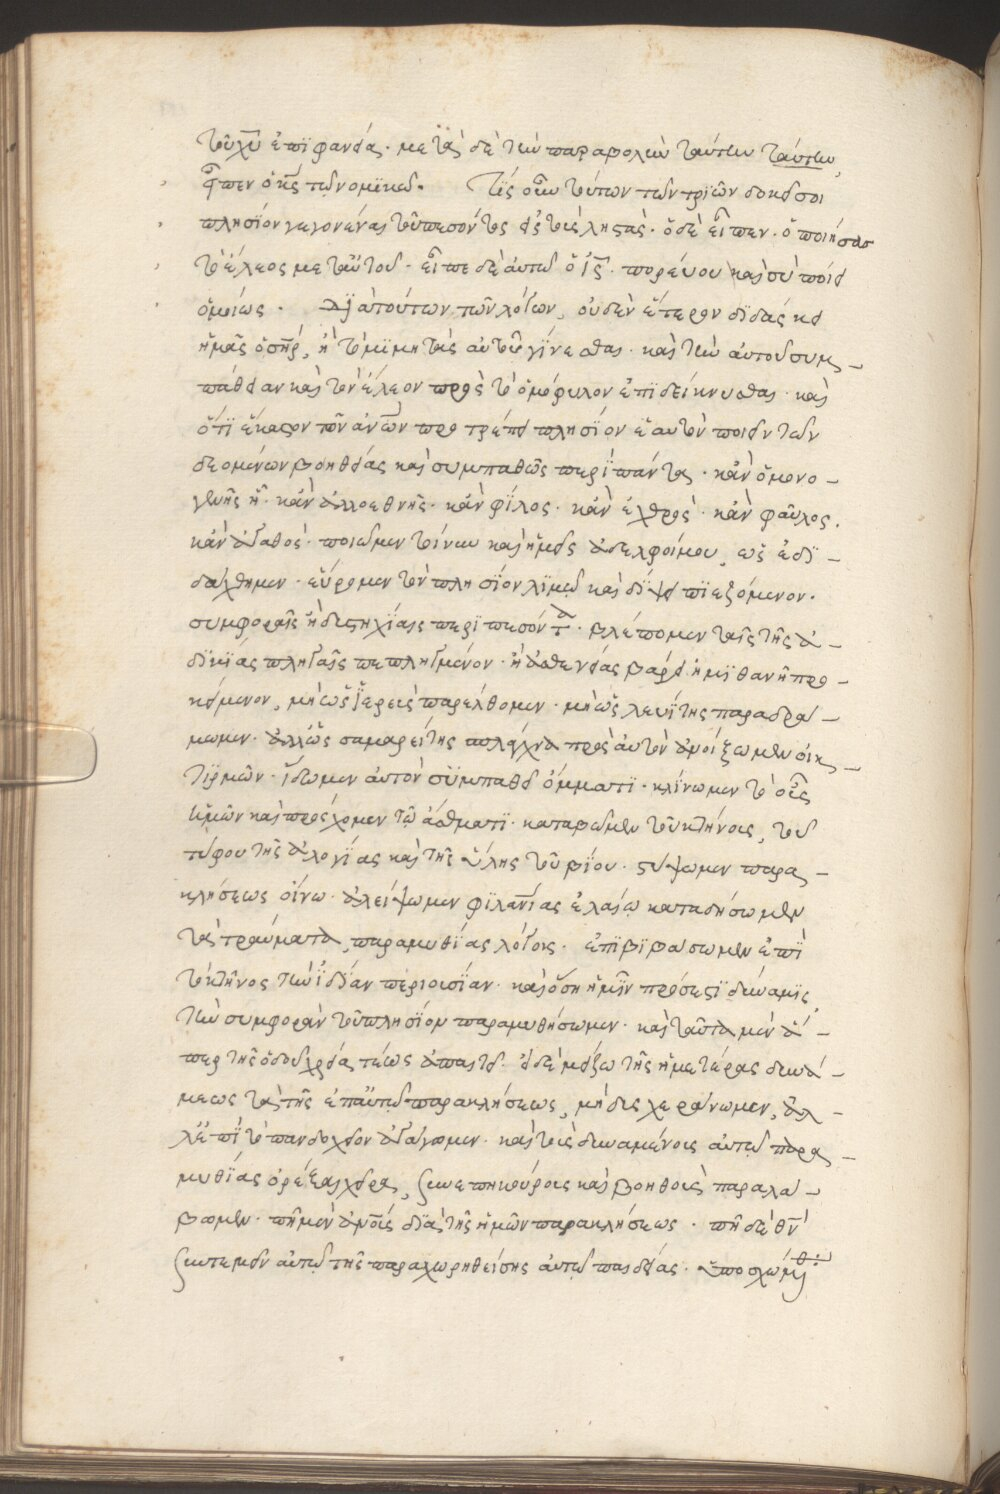 τοῦ χυ ἐπιφανείας· μετὰ δὲ τὴν παραβολὴν ταύτην ταύτην,
εἶπεν ὁ κς τῷ νομικῷ. Τίς οὖν τούτων τῶν τριῶν δοκεῖ σοι
πλησίον γεγονέναι τοῦ πεσόντος εἰς τοὺς ληστάς· ὁ δὲ εἶπεν· ὁ ποιήσας
τὸ ἔλεος μετ' αὐτοῦ· εἶπε δὲ αὐτῷ ὁ ις· πορεύου καὶ σὺ ποίει
ὁμοίως. διὰ τούτων τῶν λόγων, οὐδὲν ἕτερον διδάσκει
ἡμᾶς ὁ σηρ, ἢ τὸ μιμητὰς αὐτοῦ γίνεσθαι· καὶ τὴν αὐτοῦ συμ-
πάθειαν καὶ τὸν ἔλεον πρὸς τὸ ὁμόφυλον ἐπιδείκνυσθαι· καὶ
ὅτι ἕκαστον τῶν ανων προτρέπει πλησίον ἑαυτὸν ποιεῖν τῶν
δεομένων βοηθείας καὶ συμπαθῶς περὶ πάντας· κἂν ὁμογο-
γενὴς ᾖ· κἂν ἀλλοεθνής· κἂν φίλος· κἂν ἐχθρός· κἂν φαῦλος·
κἂν ἀγαθός· ποιῶμεν τοίνυν καὶ ἡμεῖς ἀδελφοί μου, ὡς ἐδι-
δάχθημεν· εὕρομεν τὸν πλησίον λιμῷ καὶ δίψει πιεζόμενον·
συμφοραῖς ἢ δυστυχίαις περιπεσόντα· βλέπομεν ταῖς τῆς ἀ-
δικίας πληγαῖς πεπληγμένον· ἢ ἀσθενείας βάρει ἡμιθανῆ προ-
κείμενον, μὴ ὡς ἱερεὺς παρέλθομεν· μὴ ὡς λευίτης παραδρά-
μωμεν· ἀλλ' ὡς σαμαρείτης σπλάγχνα πρὸς αὐτὸν ἀνοίξωμεν οἰκ-
τιρμῶν· ἴδωμεν αὐτὸν συμπαθεῖ ὄμματι· κλίνωμεν τὸ οὖς
ἡμῶν καὶ προσχομεν τῷ ἄσθματι· καταβῶμεν τοῦ κτήνους, τοῦ
τύφου τῆς ἀλογίας καὶ τῆς ὕλης τοῦ βίου· στύψωμεν παρα-
κλήσεως οἴνῳ· ἀλείψωμεν φιλανιας ἐλαίῳ καταδήσωμεν
τὰ τραύματα, παραμυθίας λόγοις· ἐπιβιβάσωμεν ἐπὶ
τὸ κτῆνος τὴν ἰδίαν περιουσίαν· καὶ ὅση ἡμῖν πρόσεστι δύναμις,
τὴν συμφορὰν τοῦ πλησίον παραμυθήσωμεν· καὶ ταῦτα μὲν ἅ-
περ τῆς ὁδοῦ χρεία τέως ἀπαιτεῖ· εἰ δὲ μείζω τῆς ἡμετέρας δυνά-
μεως τὰ τῆς ἐπ' αὐτῷ παρακλήσεως, μὴ δυσχεραίνωμεν, ἀλ-
λ' ἐπὶ τὸ πανδοχεῖον ἀγάγωμεν· καὶ τοὺς δυναμένους αὐτῷ παρα-
μυθίας ὀρέξαι χεῖρα, συνεπικούρους καὶ βοηθοὺς παραλά-
βωμεν· πῆ μὲν ανοις διὰ τῆς ἡμῶν παρακλήσεως· πῆ δὲ θν
συντυχεῖν αὐτῷ τῆς παραχωρηθείσης αὐτῷ παιδείας· ὑποσχώμεθα